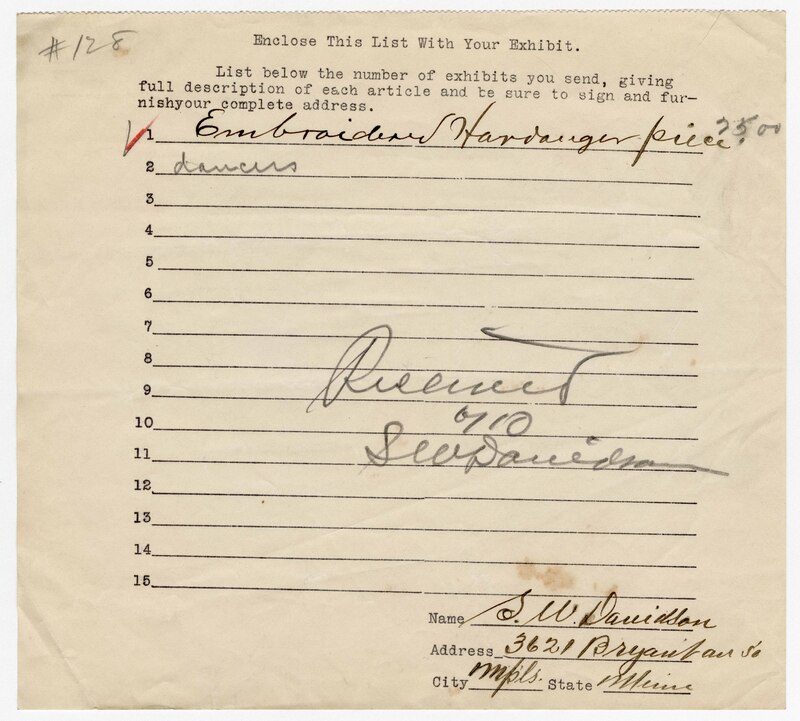 #128
Enclose This List With Your Exhibit.
List below the number of exhibits you send, giving
full description of each article and be sure to sign and fur-
nishyour complete address.
1 Embroidered Hardanger piece. 25.00
2 dancers
3
4
5
6
7
8
9
10
11 S W Davidson
12
13
14
15
Name S. W. Davidson
Address 3621 Bryant av So
City Mpls. State Minn